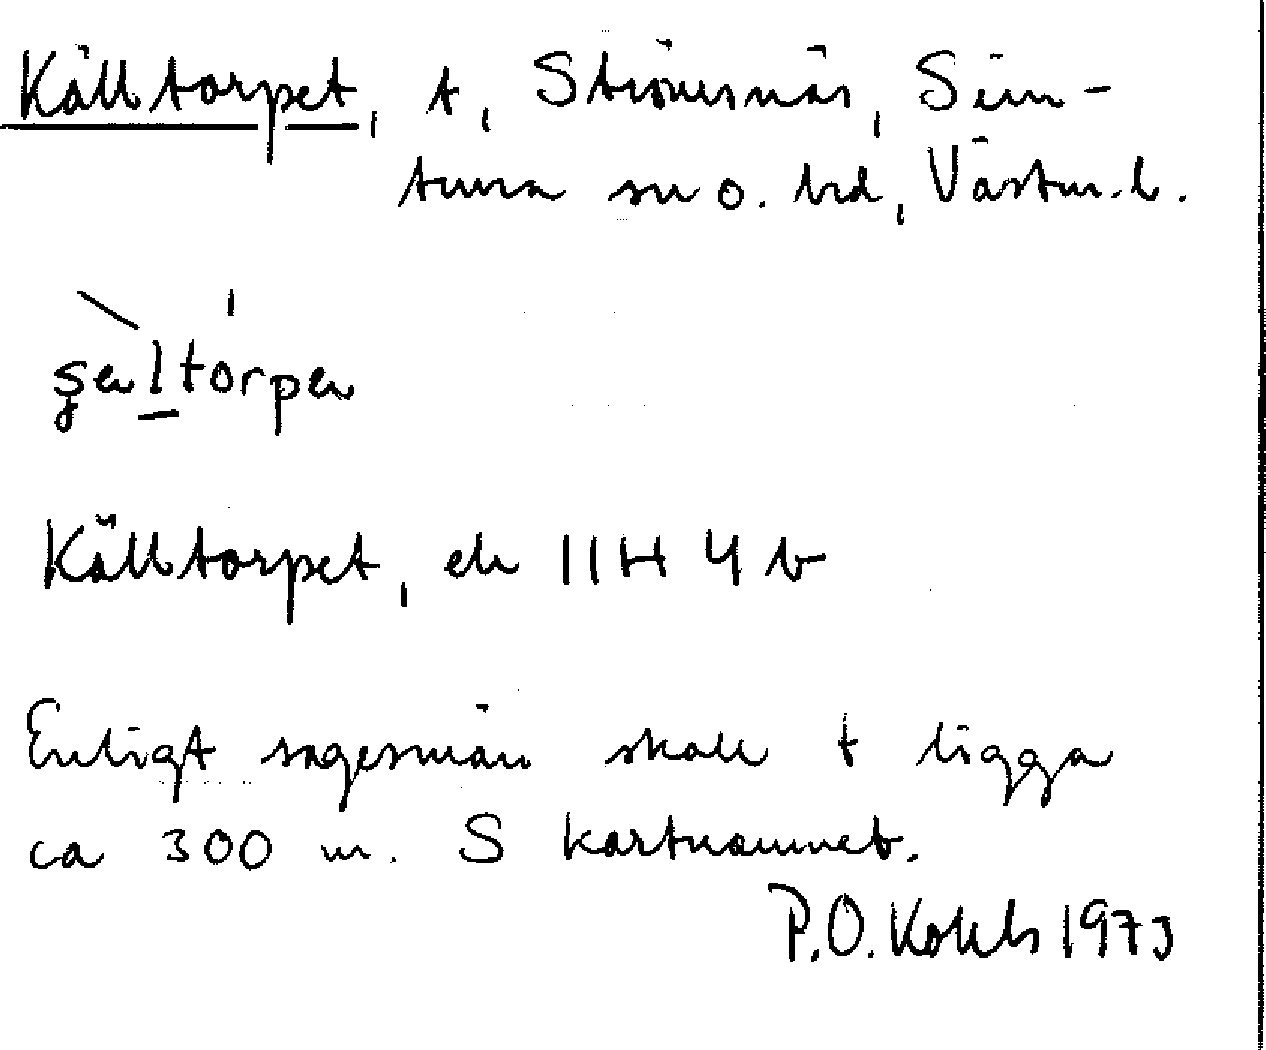 Källtorpet, t, Strömsnäs, Sim-
tuna sn o. hd, Västm. l.
Källtorpet, ek 11H 4 b
Enligt sagesmän skall t ligga
ca 300 m. S kartnamnet.
P.O. 1973